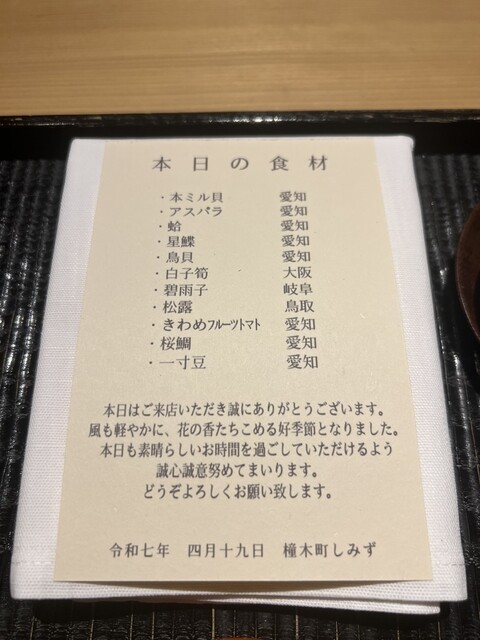 本日の食材
・本ミル貝 愛知
・アスパラ 愛知
・蛤 愛知
・星鰈 愛知
・鳥貝 愛知
・白子筍 大阪
・碧雨子 岐阜
・松露 鳥取
・きわめフルーツトマト 愛知
・桜鯛 愛知
・一寸豆 愛知
本日はご来店いただき誠にありがとうございます。
風も軽やかに、花の香たちこめる好季節となりました。
本日も素晴らしいお時間を過ごしていただけるよう
誠心誠意努めてまいります。
どうぞよろしくお願い致します。
令和七年 四月十九日 橦木町しみず